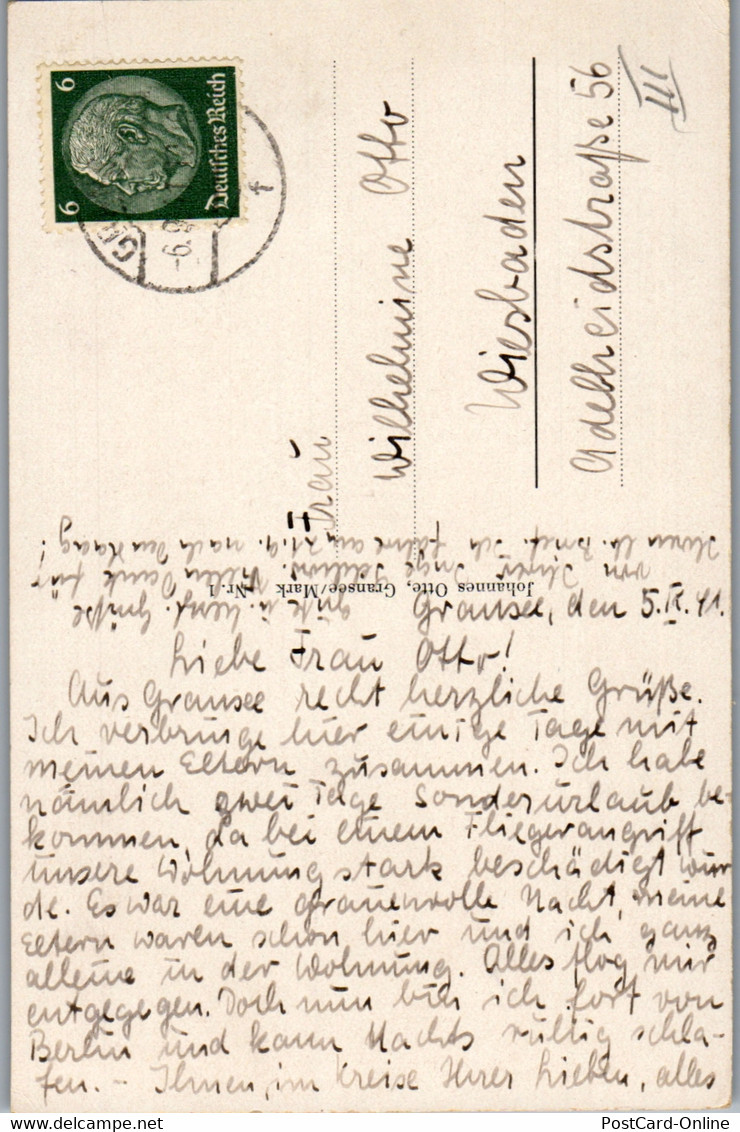 6 6
Deutsches Reich
GR
-6.9
f
Frau
Wilhelmine Otto
Wiesbaden
Adelheidstraße 56
III
Johannes Otte, Gransee/Mark Nr. 1
Gransee, den 5.IX.41.
Liebe Frau Otto!
Aus Gransee recht herzliche Grüße.
Ich verbringe hier einige Tage mit
meinen Eltern zusammen. Ich habe
nämlich zwei Tage Sonderurlaub be-
kommen, da bei einem Fliegerangriff
unsere Wohnung stark beschädigt wur
de. Es war eine grauenvolle Nacht, meine
Eltern waren schon hier und ich ganz
alleine in der Wohnung. Alles flog mir
entgegegen. Doch nun bin ich fort von
Berlin und kann Nachts ruhig schla-
fen. - Ihnen, im Kreise Ihrer Lieben, alles
gute u. herzl. Grüße
von Ihrer Inge Vielen Dank für
Ihren lb. Brief. Ich fahre am 21.9. nach Den Haag!
PostCard-Online